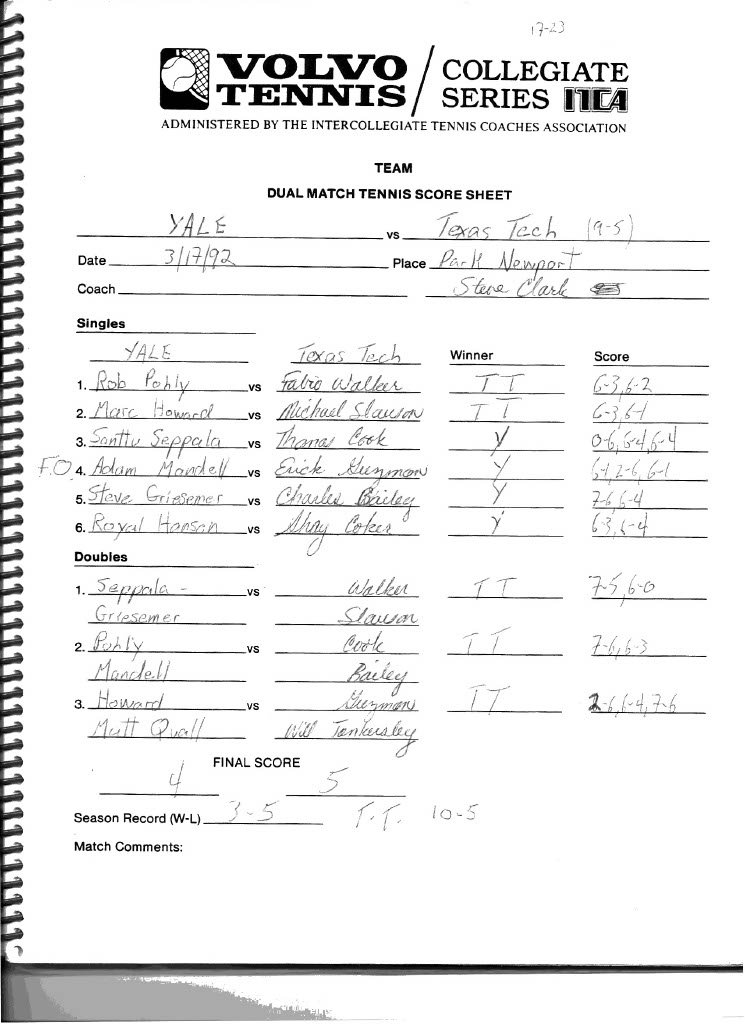 17-23
VOLVO TENNIS / COLLEGIATE SERIES ITCA
ADMINISTERED BY THE INTERCOLLEGIATE TENNIS COACHES ASSOCIATION
TEAM
DUAL MATCH TENNIS SCORE SHEET
YALE vs Texas Tech (9-5)
Date 3/17/92 Place Park Newport
Coach Steve Clark
Singles
YALE Texas Tech Winner Score
1. Rob Pohly vs Fabio Walker TT 6-3, 6-2
2. Marc Howard vs Michael Slauson TT 6-3, 6-1
3. Santtu Seppala vs Thomas Cook Y 0-6, 6-4, 6-4
F.O. 4. Adam Mandell vs Erick Guzman Y 6-1, 2-6, 6-1
5. Steve Griesemer vs Charles Bailey Y 7-6, 6-4
6. Royal Hansan vs Coker Y 6-3, 6-4
Doubles
1. Seppala - vs Walker TT 7-5, 6-0
Griesemer Slauson
2. Pohly vs Cook TT 7-6, 6-3
Mandell Bailey
3. Howard vs Guzman TT 2-6, 6-4, 7-6
Matt Quall Will Tankersley
FINAL SCORE
4 5
Season Record (W-L) 3-5 T.T. 10-5
Match Comments: